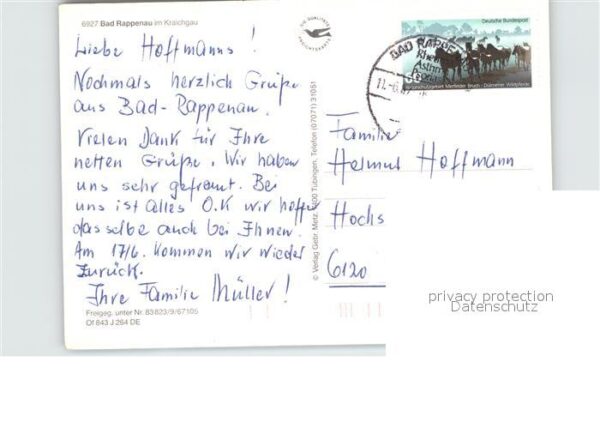 6927 Bad Rappenau im Kraichgau
Liebe Hoffmanns !
Nochmals herzlich Grüße
aus Bad-Rappenau.
Vielen Dank für Ihre
netten Grüße. Wir haben
uns sehr gefreut. Bei
uns ist alles O.K wir hoffen
dasselbe auch bei Ihnen.
Am 17/6. kommen wir wieder
zurück.
Ihre Familie Müller !
Freigeg. unter Nr. 83823/9/67105
Of 843 J 264 DE
DIE QUALITÄTS
ANSICHTSKARTE
© Verlag Gebr. Metz, 7400 Tübingen, Telefon (07071) 31051
Deutsche Bundespost
Naturschutzgebiet Merfelder Bruch - Dülmener Wildpferde
BAD RAPPEN
Familie
Helmut Hoffmann
Hochs
6120
privacy protection
Datenschutz